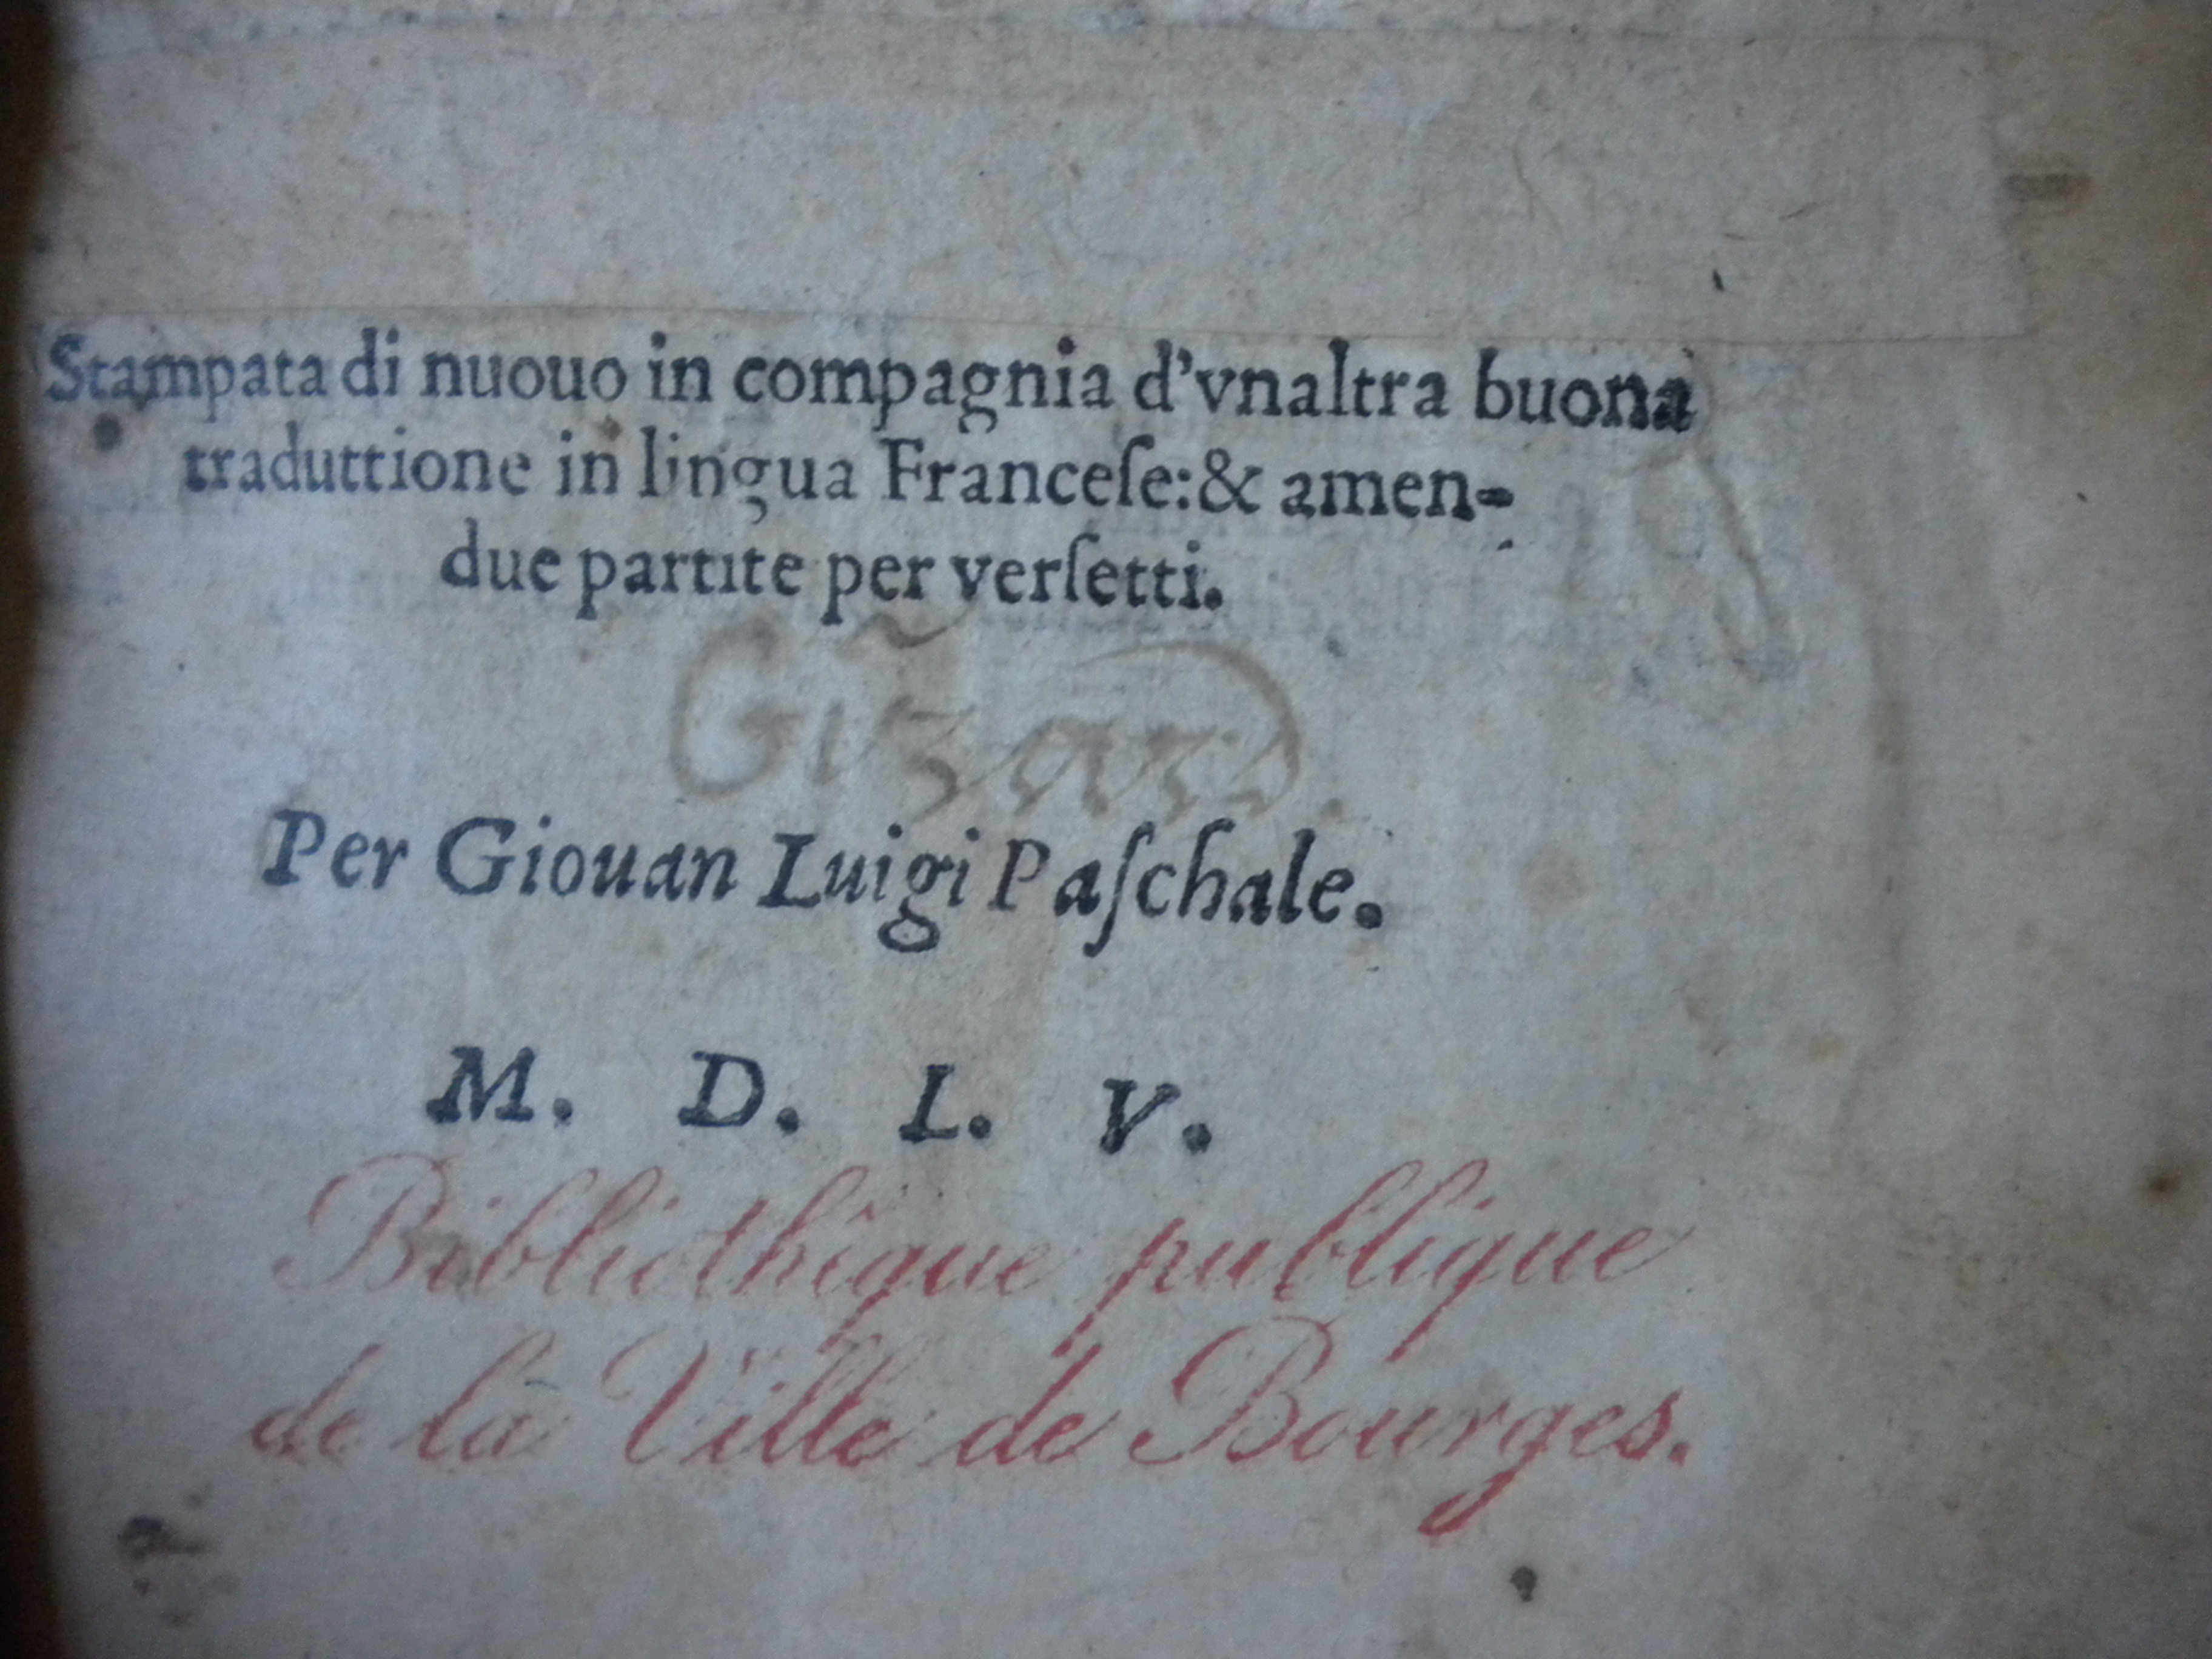 Stampata di nuouo in compagnia d'vnaltra buona
traduttione in lingua Franceſe: & amen-
due partite per verſetti.
Per Giouan Luigi Paſchale.
M. D. L. V.
Bibliothêque publique
de la Ville de Bourges.